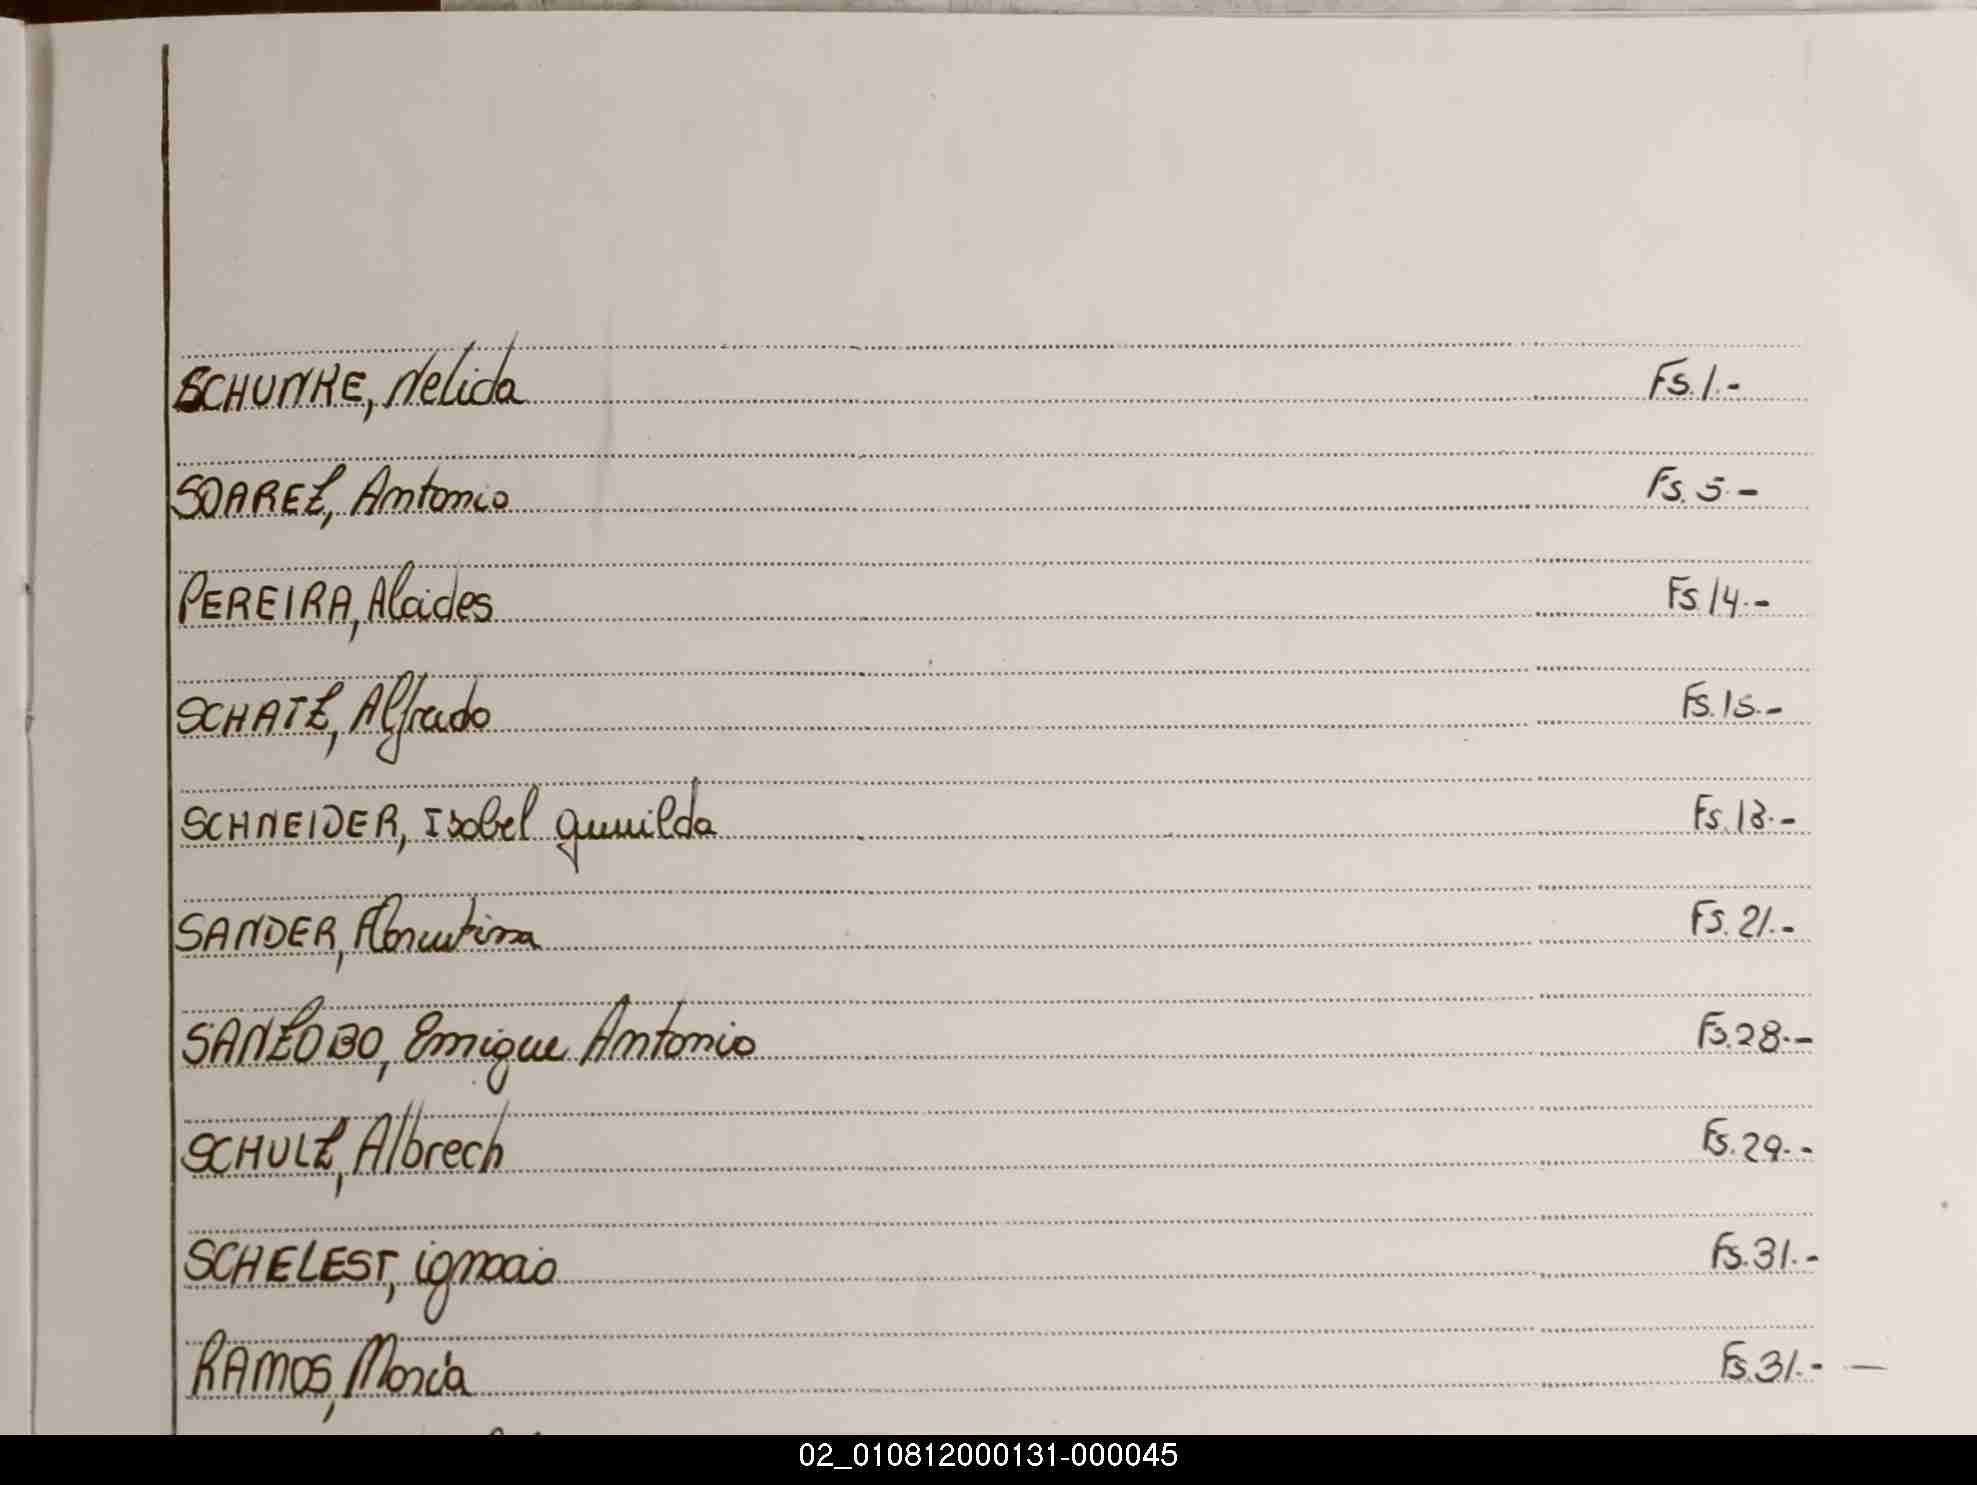 SCHUNKE, Nelida Fs.1.-
SOAREZ, Antonio Fs.5.-
PEREIRA, Alcides Fs.14.-
SCHATZ, Alfredo Fs.15.-
SCHNEIDER, Isabel Fs.18.-
SANDER, Florentina Fs.21.-
SANZOBO, Enrique Antonio Fs.28.-
SCHULZ, Albrech Fs.29.-
SCHELEST, ignacio Fs.31.-
RAMOS, Maria Fs.31.- —
02_010812000131-000045